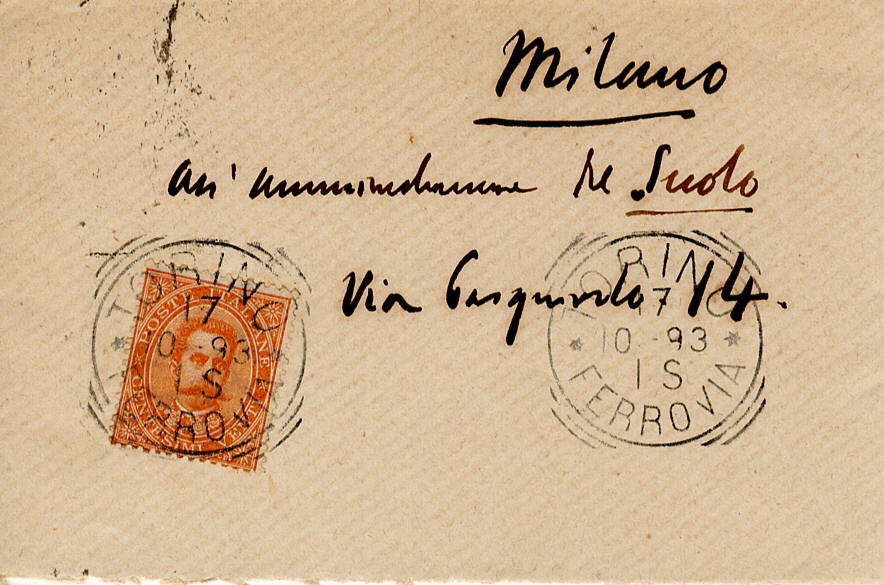 Milano
all' amministrazione del Suolo
Via Pasquirolo 14.
TORINO
17
10-93
1S
FERROVIA
POSTE ITALIANE
CENTESIMI VENTI
TORINO
17
10-93
1S
FERROVIA